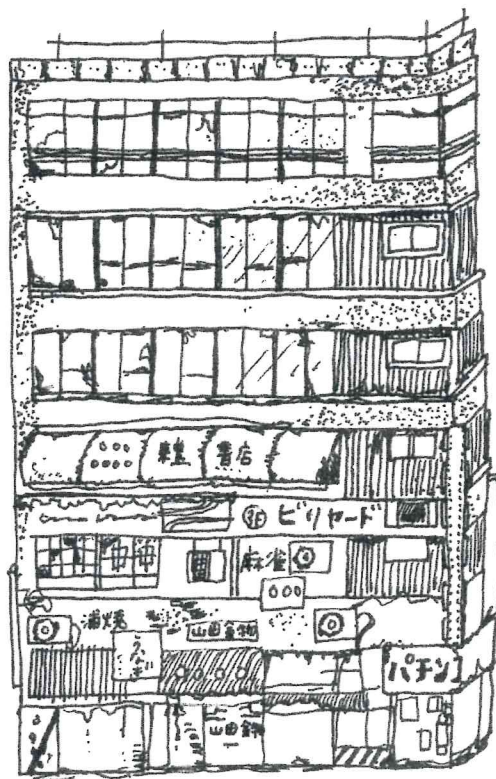 書店
3F ビリヤード
麻雀
蒲焼
うなぎ
山田金物
パチンコ
山田金物